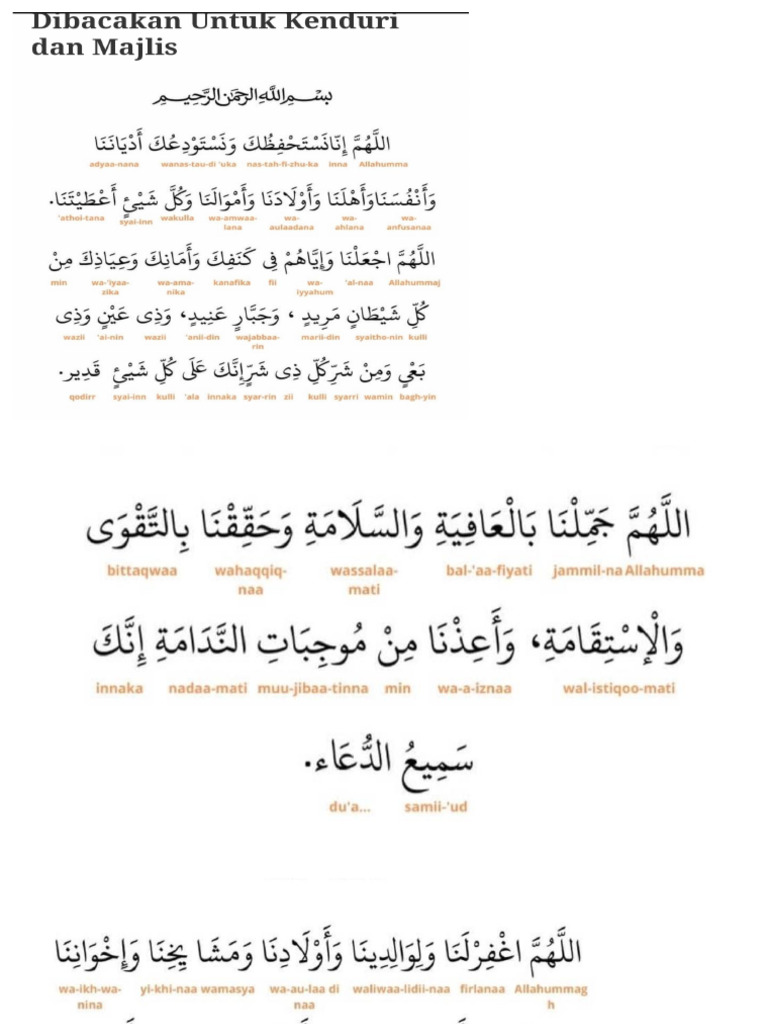 Dibacakan Untuk Kenduri
dan Majlis
بِسْمِ اللَّهِ الرَّحْمَنِ الرَّحِيمِ
اللَّهُمَّ إِنَّانَسْتَحْفِظُكَ وَنَسْتَوْدِعُكَ أَدْيَانَنَا
adyaa-nana wanas-tau-di 'uka nas-tah-fi-zhu-ka inna Allahumma
وَأَنْفُسَنَاوَأَهْلَنَا وَأَوْلَادَنَا وَأَمْوَالَنَا وَكُلَّ شَيْئٍ أَعْطَيْتَنَا.
'athoi-tana syai-inn wakulla wa-amwaa- wa- wa- wa-
lana aulaadana ahlana anfusanaa
اللَّهُمَّ اجْعَلْنَا وَإِيَّاهُمْ فِي كَنَفِكَ وَأَمَانِكَ وَعِيَاذِكَ مِنْ
min wa-'iyaa- wa-ama- kanafika fii wa- 'al-naa Allahummaj
zika nika iyyahum
كُلِّ شَيْطَانٍ مَرِيدٍ ، وَجَبَّارٍ عَنِيدٍ، وَذِى عَيْنٍ وَذِى
wazii 'ai-nin wazii 'anii-din wajabbaa- marii-din syaitho-nin kulli
rin
بَغْيٍ وَمِنْ شَرِّكُلِّ ذِى شَرٍّإِنَّكَ عَلَى كُلِّ شَيْئٍ قَدِير.
qodirr syai-inn kulli 'ala innaka syar-rin zii kulli syarri wamin bagh-yin
اللَّهُمَّ جَمِّلْنَا بَالْعَافِيَةِ وَالسَّلَامَةِ وَحَقِّقْنَا بِالتَّقْوَى
bittaqwaa wahaqqiq- wassalaa- bal-'aa-fiyati jammil-na Allahumma
naa mati
وَالْإِسْتِقَامَةِ، وَأَعِذْنَا مِنْ مُوجِبَاتِ النَّدَامَةِ إِنَّكَ
innaka nadaa-mati muu-jibaa-tinna min wa-a-iznaa wal-istiqoo-mati
سَمِيعُ الدُّعَاء.
du'a... samii-'ud
اللَّهُمَّ اغْفِرْلَنَا وَلِوَالِدِينَا وَأَوْلَادِنَا وَمَشَا يِخِنَا وَإِخْوَانِنَا
wa-ikh-wa- yi-khi-naa wamasya wa-au-laa di waliwaa-lidii-naa firlanaa Allahummag
nina naa h